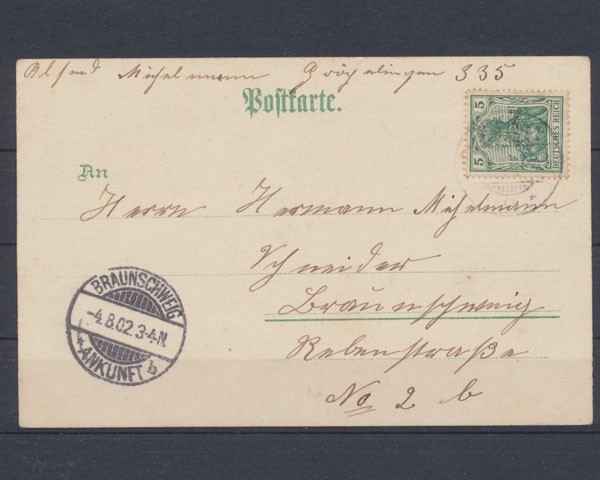 Alfred Michelmann Gröpelingen 335
Postkarte.
5 5
DEUTSCHES REICH
An
Herrn Hermann Michelmann
Schneider
Braunschweig
Rebenstraße
No 2 b
BRAUNSCHWEIG
-4.8.02.3-4N.
*ANKUNFT b